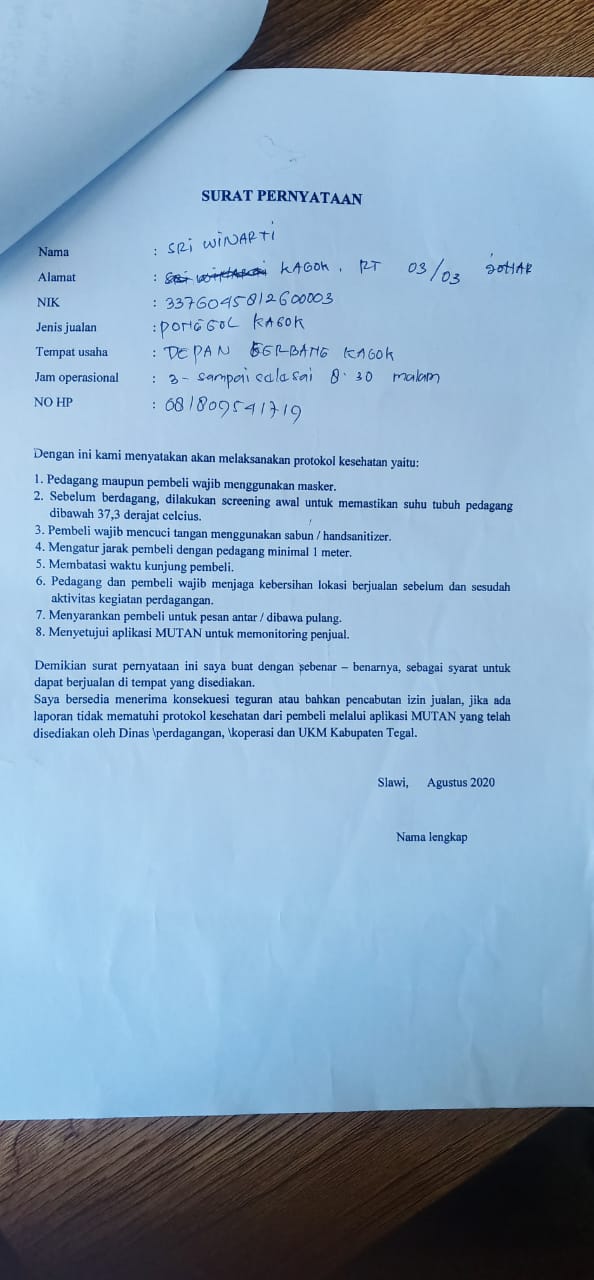 SURAT PERNYATAAN
Nama : SRi WINARTi
Alamat : KAGOK. RT 03/03 
NIK : 3376045812600003
Jenis jualan : PONGGOL KAGOK
Tempat usaha : DEPAN GERBANG KAGOK
Jam operasional : 3 - sampai selasai 8.30 malam
NO HP : 081809541719
Dengan ini kami menyatakan akan melaksanakan protokol kesehatan yaitu:
1. Pedagang maupun pembeli wajib menggunakan masker.
2. Sebelum berdagang, dilakukan screening awal untuk memastikan suhu tubuh pedagang
dibawah 37,3 derajat celcius.
3. Pembeli wajib mencuci tangan menggunakan sabun / handsanitizer.
4. Mengatur jarak pembeli dengan pedagang minimal 1 meter.
5. Membatasi waktu kunjung pembeli.
6. Pedagang dan pembeli wajib menjaga kebersihan lokasi berjualan sebelum dan sesudah
aktivitas kegiatan perdagangan.
7. Menyarankan pembeli untuk pesan antar / dibawa pulang.
8. Menyetujui aplikasi MUTAN untuk memonitoring penjual.
Demikian surat pernyataan ini saya buat dengan sebenar – benarnya, sebagai syarat untuk
dapat berjualan di tempat yang disediakan.
Saya bersedia menerima konsekuesi teguran atau bahkan pencabutan izin jualan, jika ada
laporan tidak mematuhi protokol kesehatan dari pembeli melalui aplikasi MUTAN yang telah
disediakan oleh Dinas \perdagangan, \koperasi dan UKM Kabupaten Tegal.
Slawi, Agustus 2020
Nama lengkap